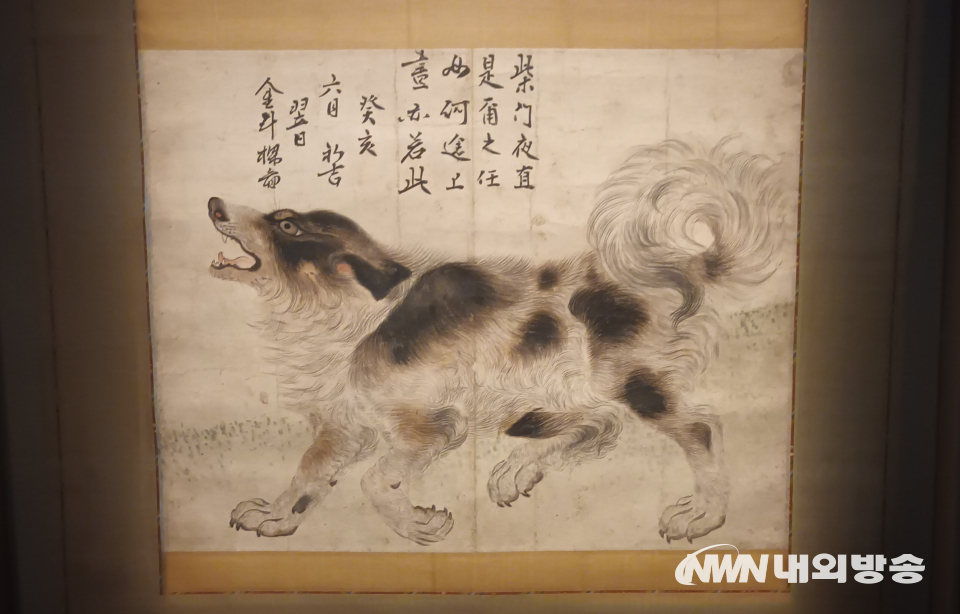 柴門夜直
是爾之任
如何途上
晝亦若此
癸亥
六月初吉
翌日
金斗樑圖
NWN내외방송